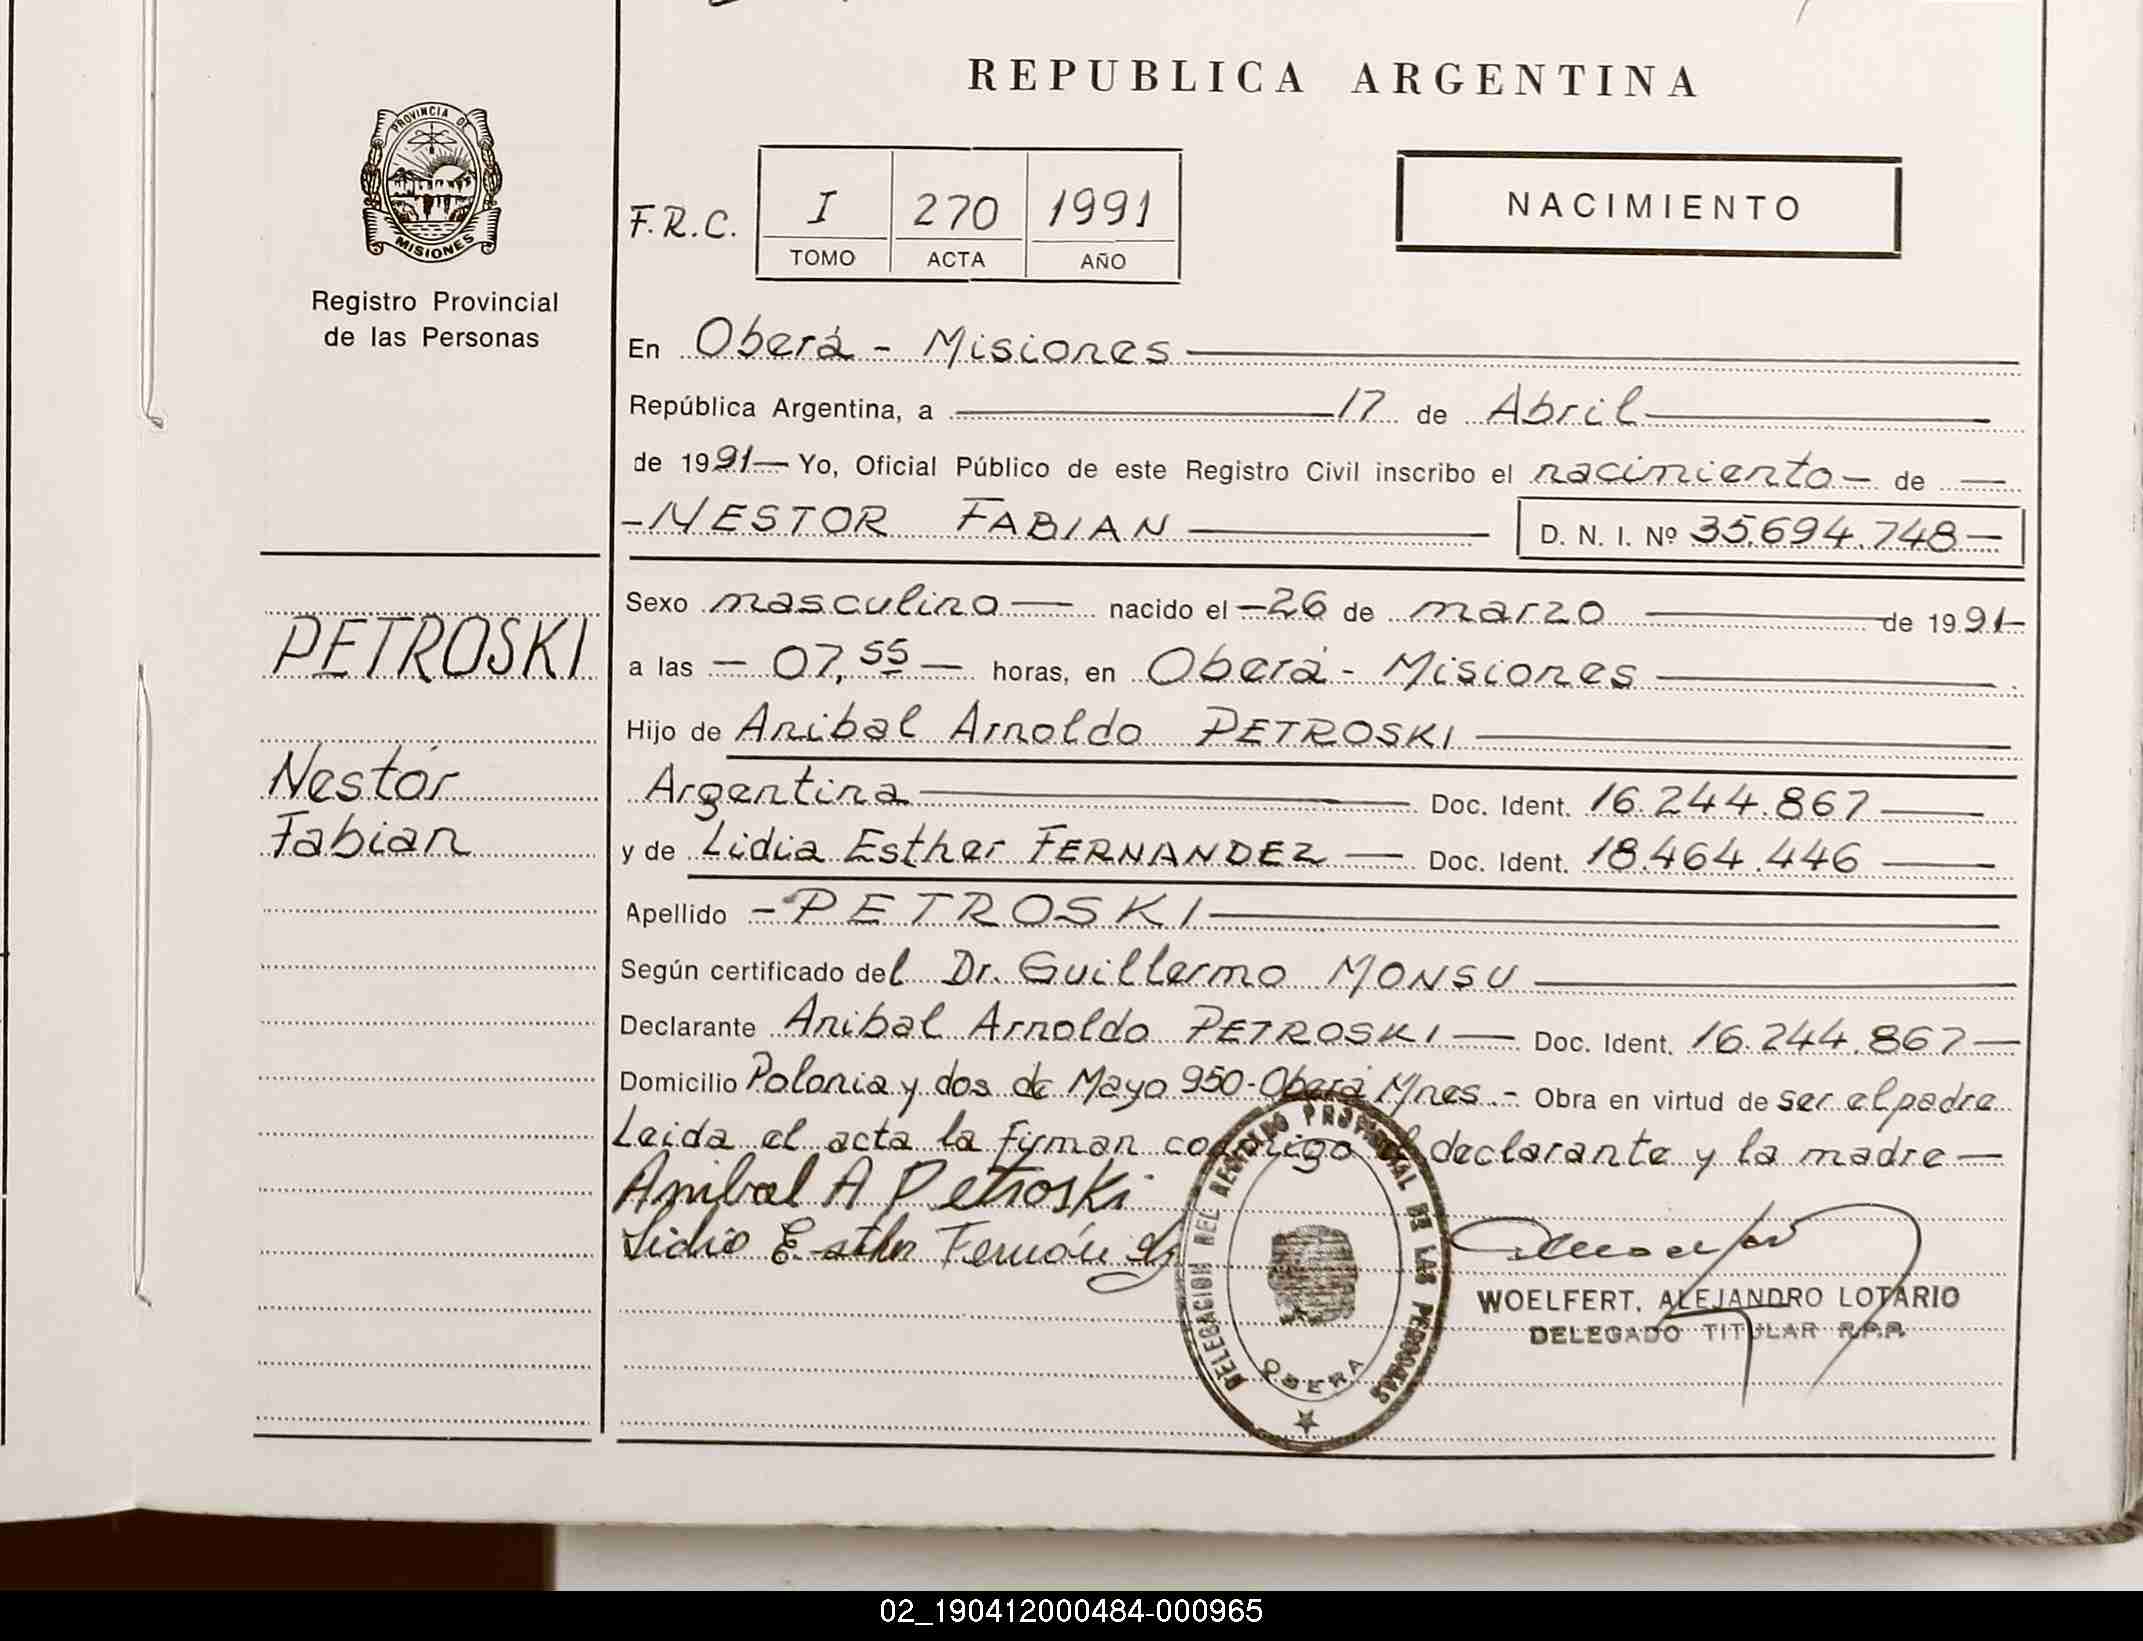 PROVINCIA DE
MISIONES
Registro Provincial
de las Personas
PETROSKI
Nestor
Fabian
REPUBLICA ARGENTINA
F.R.C. I 270 1991
TOMO ACTA AÑO
NACIMIENTO
En Oberá - Misiones
República Argentina, a 17 de Abril
de 1991 — Yo, Oficial Público de este Registro Civil inscribo el nacimiento — de —
- NESTOR FABIAN — D. N. I. Nº 35.694.748 —
Sexo masculino — nacido el - 26 de marzo — de 1991 -
a las — 07,55 — horas, en Oberá - Misiones —
Hijo de Anibal Arnoldo PETROSKI —
Argentina — Doc. Ident. 16.244.867 —
y de Lidia Esther FERNANDEZ — Doc. Ident. 18.464.446 —
Apellido - PETROSKI —
Según certificado del Dr. Guillermo MONSU —
Declarante Anibal Arnoldo PETROSKI — Doc. Ident. 16.244.867 —
Domicilio Polonia y dos de Mayo 950 - Oberá Mnes. - Obra en virtud de ser el padre
Leida el acta la firman conmigo el declarante y la madre —
Anibal A Petroski
Lidia Esther Fernández
DELEGACION DEL REGISTRO PROVINCIAL DE LAS PERSONAS
OBERA
WOELFERT, ALEJANDRO LOTARIO
DELEGADO TITULAR R.P.P.
02_190412000484-000965